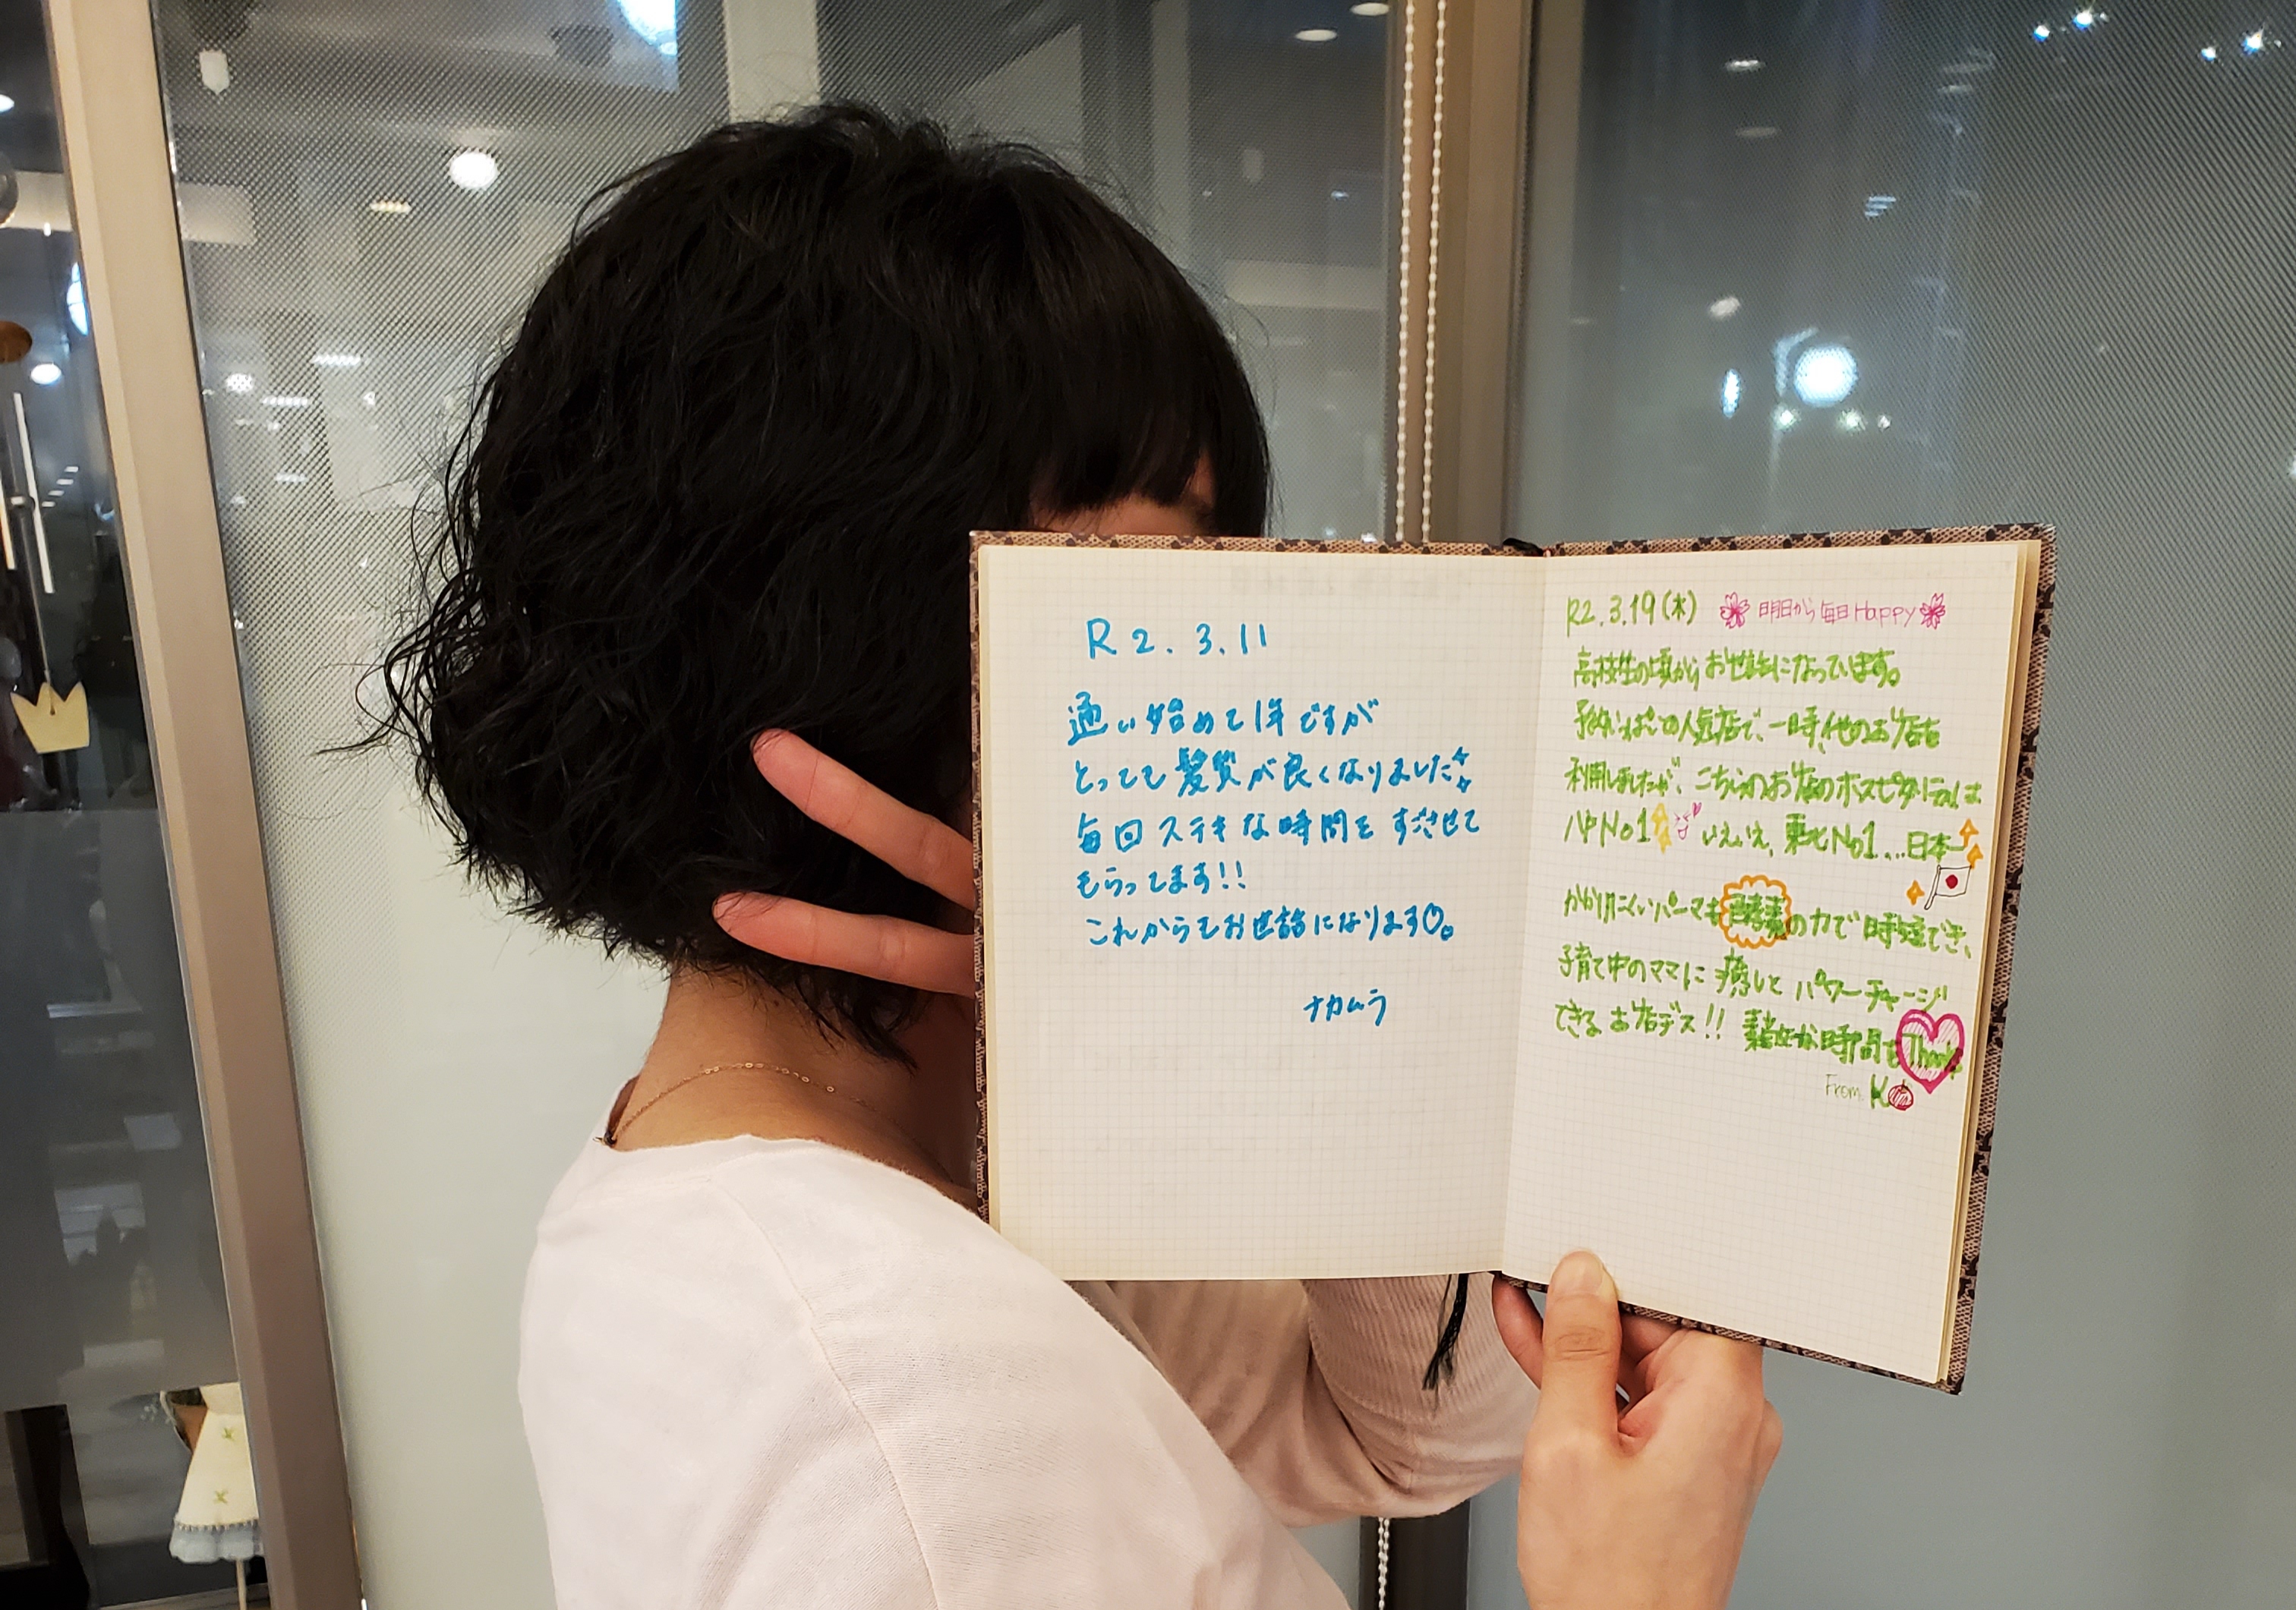 R2.3.11
通い始めて1年ですが
とっても髪質が良くなりました
毎回ステキな時間をすごさせて
もらってます!!
これからもお世話になります。
ナカムラ
R2.3.19(木) 明日から毎日Happy
高校生の頃からお世話になっています。
予約いっぱいの人気店で、一時、他のお店を
利用しましたが、こちらのお店のホスピタリティは
No1 いえいえ、東北No1...日本一
かかりにくいパーマも酵素の力で時短でき、
子育て中のママに癒しとパワーチャージ
できるお店デス!! 贅沢な時間をThank
From K